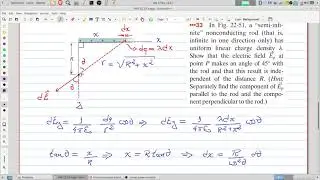 dx
dq = λdx
r = √R²+x²
R
θ
dE⃗
••33 In Fig. 22-51, a "semi-
infinite" nonconducting rod (that is,
infinite in one direction only) has
uniform linear charge density λ.
Show that the electric field E⃗p at
point P makes an angle of 45° with
the rod and that this result is inde-
pendent of the distance R. (Hint:
Separately find the component of E⃗p
parallel to the rod and the component
perpendicular to the rod.)
dEy = 1/4πε₀ dq/r² cosθ ⇒ dEy = 1/4πε₀ λdx/R²+x² cosθ
tanθ = x/R ⇒ x = R tanθ ⇒ dx = R/cos²θ dθ